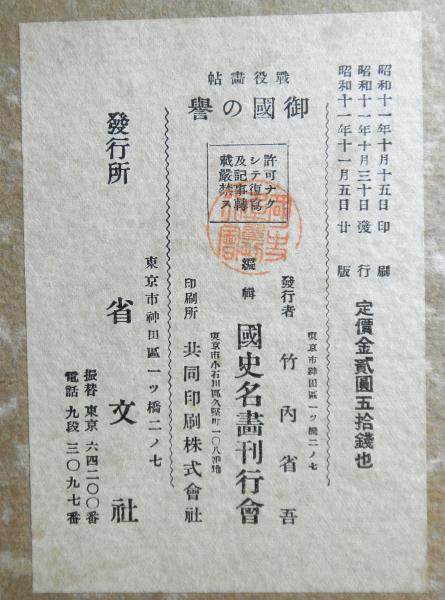 昭和十一年十月十五日印刷
昭和十一年十月三十日發行
昭和十一年十一月五日廿版
定價金貳圓五拾錢也
戰役畵帖
御國の譽
許可ナク
シテ復寫
及記事轉
載嚴禁ス
東京市神田區一ッ橋二ノ七
發行者 竹內省吾
編輯 國史名畵刊行會
東京市小石川區久堅町一〇八番地
印刷所 共同印刷株式會社
東京市神田區一ッ橋二ノ七
發行所 省文社
振替東京六四二〇〇番
電話九段三〇九七番